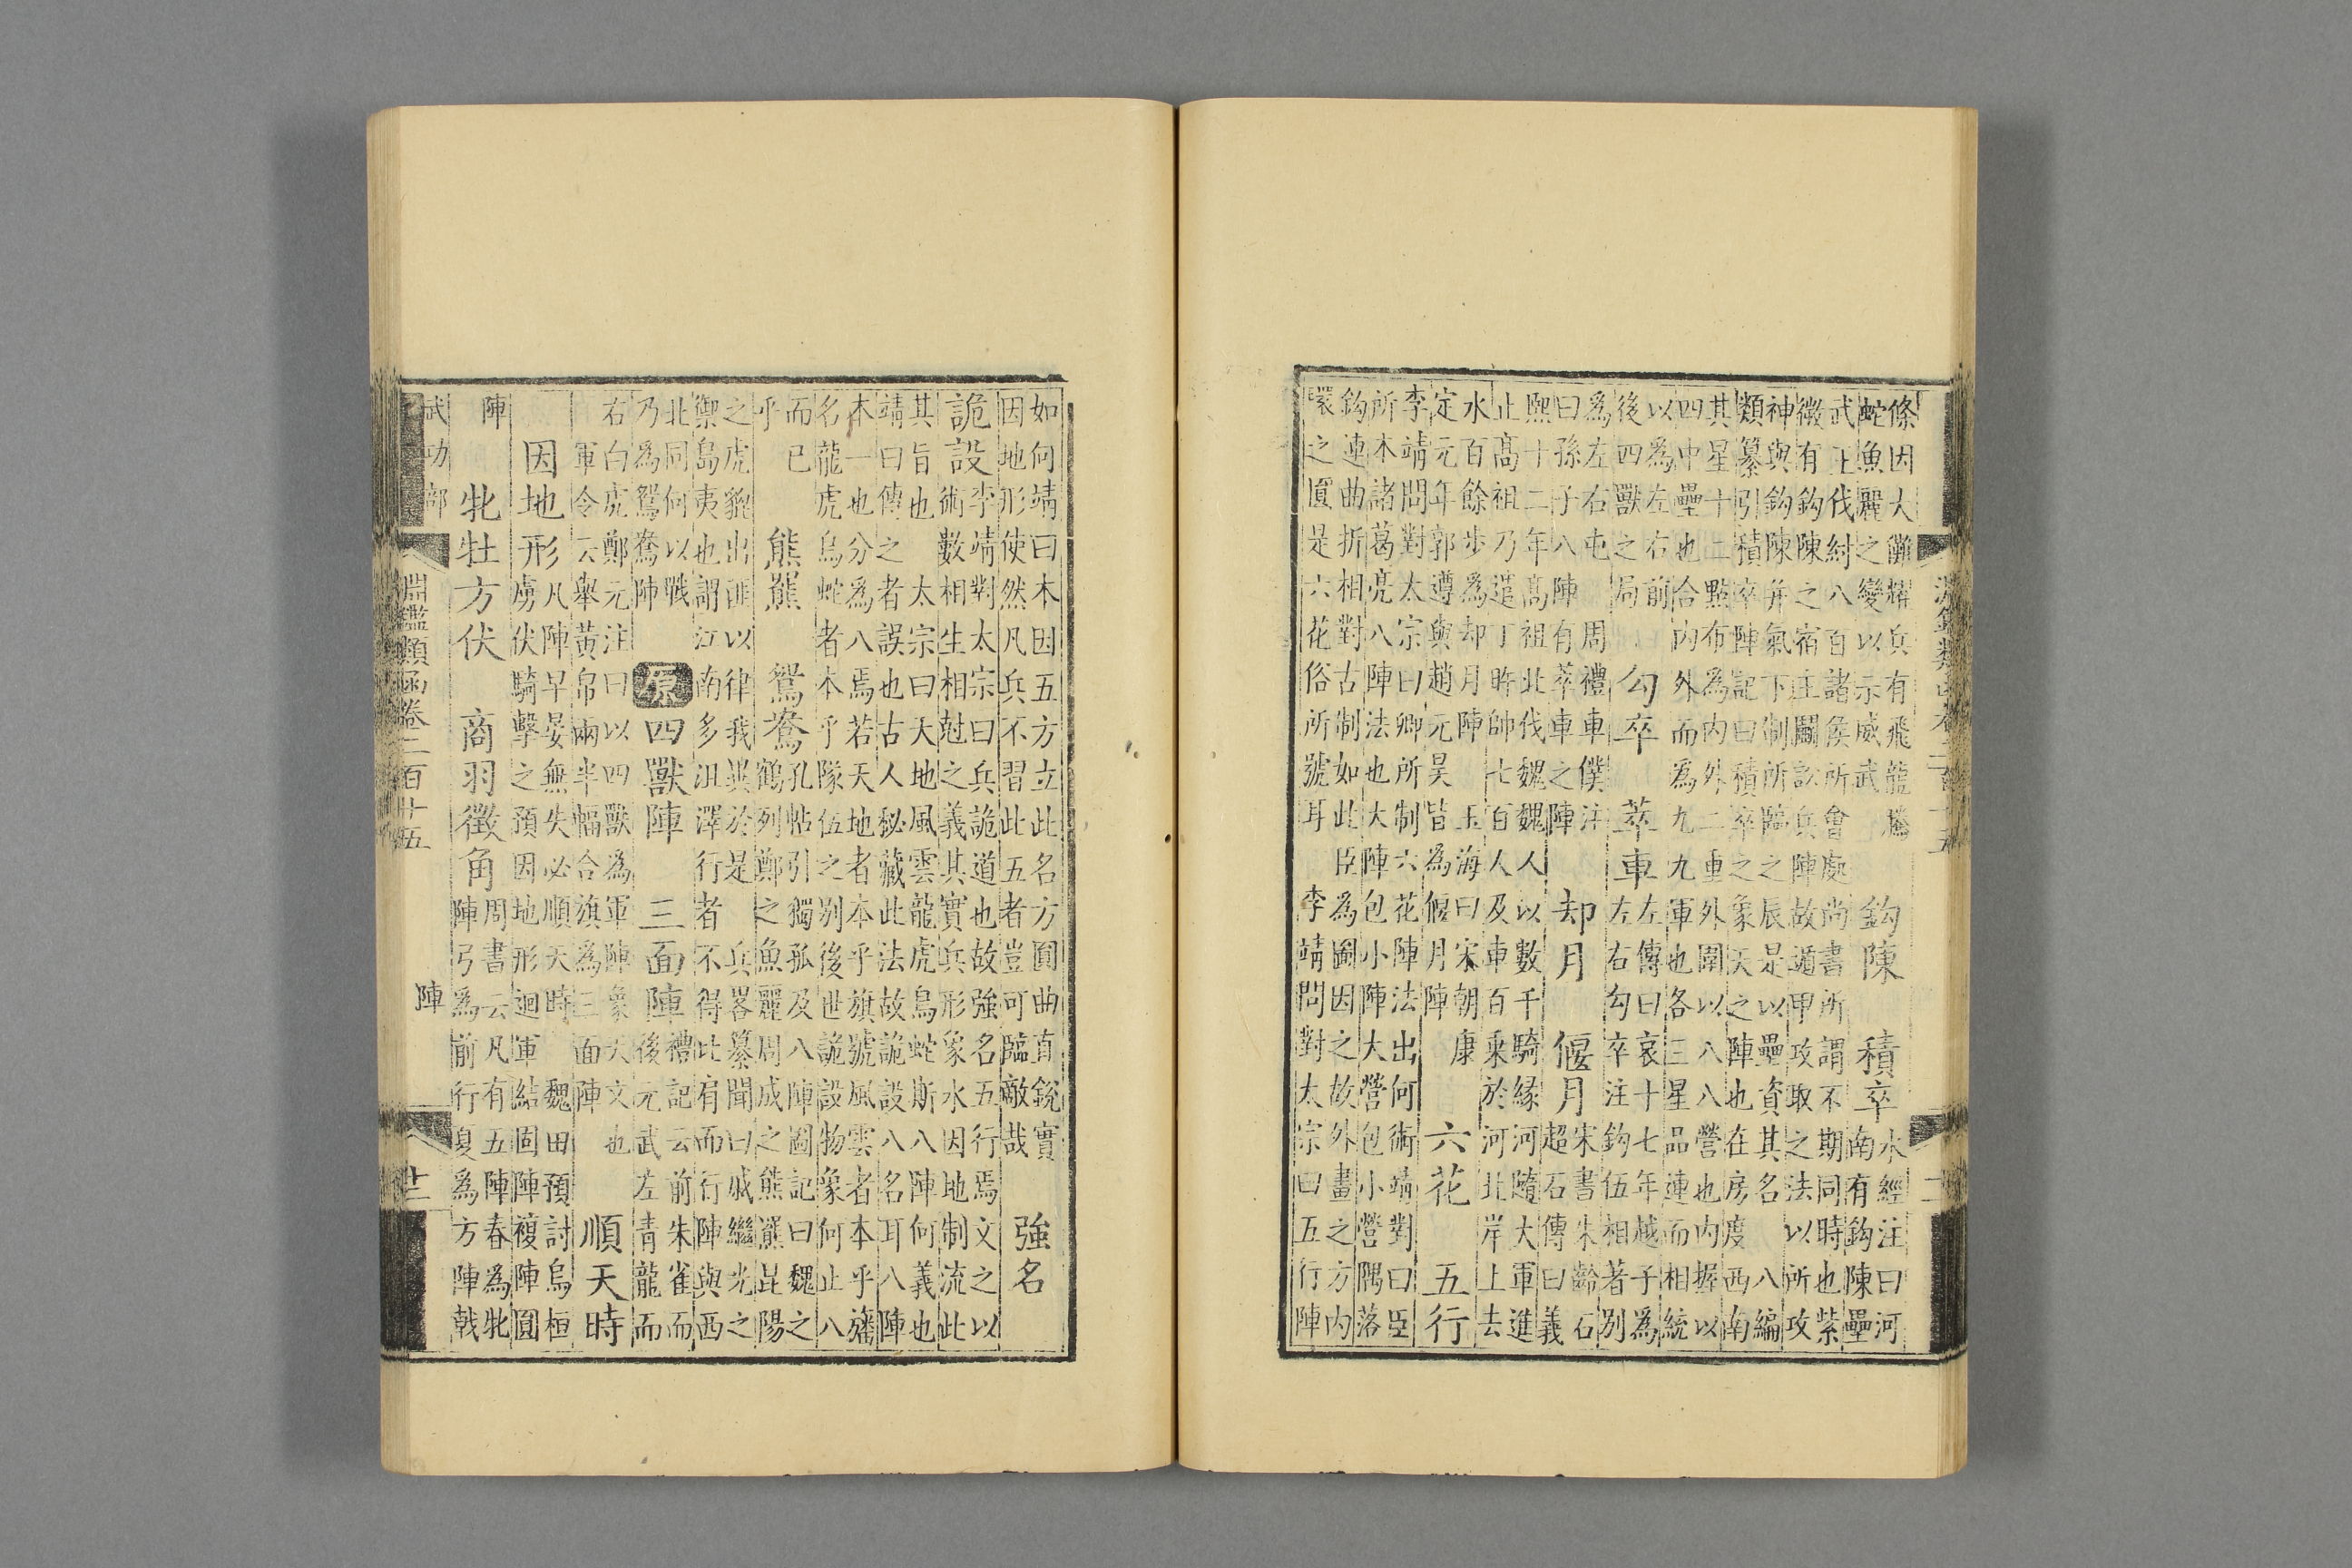 條因大儺耀兵有飛龍騰
蛇魚麗之變以示威武
鈎陳
積卒
水經注曰河
南有鈎陳壘
武王伐紂八百諸侯所會處尚書所謂不期同時也紫
微有鈎陳之宿主鬭訟兵陣故遁甲攻取之法以所攻
神與鈎陳并氣下制所臨之辰是以壘資其名八編
類纂引積卒陣記曰積卒之象天之陣也在房度西南
其星十二點布為內外二重外圍以八八營也內握以
四中壘也合內外而為九九軍也各三星品連而相統
以為左右前
後四獸之局
勾卒
左傳曰哀十七年越子為
左右勾卒注鈎伍相著別
為左右屯
萃車
周禮車僕注
曰孫子八陣有萃車之陣
却月
偃月
宋書朱齡石
超石傳曰義
熙十二年高祖北伐魏魏人以數千騎緣河隨大軍進
止高祖乃遣丁旿帥七百人及車百乘於河北岸上去
水百餘步為却月陣
玉海曰宋朝康
定元年郭遵與趙元昊皆為偃月陣
六花
五行
李靖問對太宗曰卿所制六花陣法出何術靖對曰臣
所本諸葛亮八陣法也大陣包小陣大營包小營隅落
鈎連曲折相對古制如此臣為圖因之故外畫之方內
環之圓是六花俗所號耳
李靖問對太宗曰五行陣
如何靖曰本因五方立此名方圓曲直銳實
因地形使然凡兵不習此五者豈可臨敵哉
強名
詭設
李靖對太宗曰兵詭道也故強名五行焉文之以
術數相生相尅之義其實兵形象水因地制流此
其旨也
太宗曰天地風雲龍虎鳥蛇斯八陣何義也
靖曰傳之者誤也古人秘藏此法故詭設八名耳八陣
本一也分為八焉若天地者本乎旗號風雲者本乎旛
名龍虎鳥蛇者本乎隊伍之別後世詭設物象何止八
而已
乎
熊羆
鴛鴦
孔帖引獨孤及八陣圖記曰魏之
鶴列鄭之魚麗周成之熊羆昆陽
之虎貔出匪以律我異於是
兵畧纂聞曰戚繼光之
禦島夷也謂江南多沮澤行者不得比肩而行陣與西
北同何以戰
乃為鴛鴦陣
原
四獸陣
三面陣
禮記云前朱雀而
後元武左青龍而
右白虎鄭元注曰以四獸為軍陣象天文也
軍令云舉黃帛兩半幅合旗為三面陣
順天時
因地形
凡陣早晏無失必順天時
魏田預討烏桓
虜伏騎擊之預因地形迴軍結固陣複陣圓
陣
牝牡方伏
商羽徵角
周書云凡有五陣春為牝
陣弓為前行夏為方陣戟
武功部
淵鑑類函卷二百十五
陣
廿二